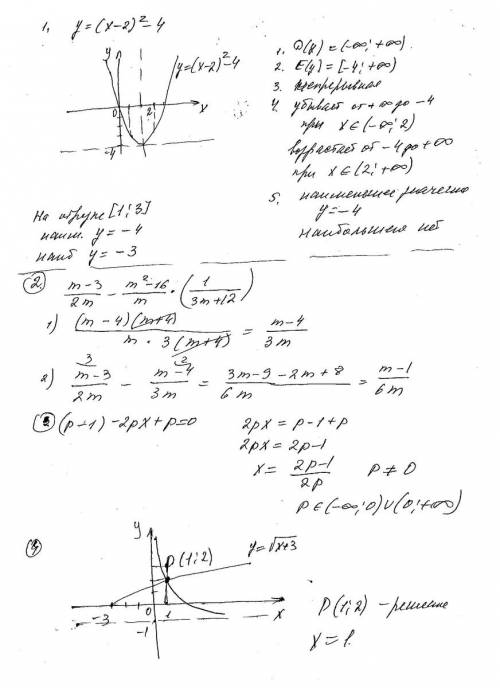 1, y = (x-2)² - 4
y
y=(x-2)²-4
0
2
x
-4
1. D(y) = (-∞; +∞)
2. E(y) = [-4; +∞)
3. непрерывная
4. убывает от +∞ до -4
при x∈(-∞; 2)
возрастает от -4 до +∞
при x∈(2; +∞)
5. наименьшее значение
y = -4
наибольшего нет
На отрезке [1; 3]
наим. y = -4
наиб y = -3
2. (m-3)/2m - (m²-16)/m · (1/(3m+12))
1) (m-4)(m+4)/(m · 3(m+4)) = (m-4)/3m
2) ³(m-3)/2m - ²(m-4)/3m = (3m-9-2m+8)/6m = (m-1)/6m
3 (p-1) - 2px + p = 0
2px = p-1+p
2px = 2p-1
x = (2p-1)/2p p ≠ 0
p∈(-∞; 0)∪(0; +∞)
4
y
P(1; 2)
y=√x+3
-3
0
1
x
-1
P(1; 2) - решение
x = 1.